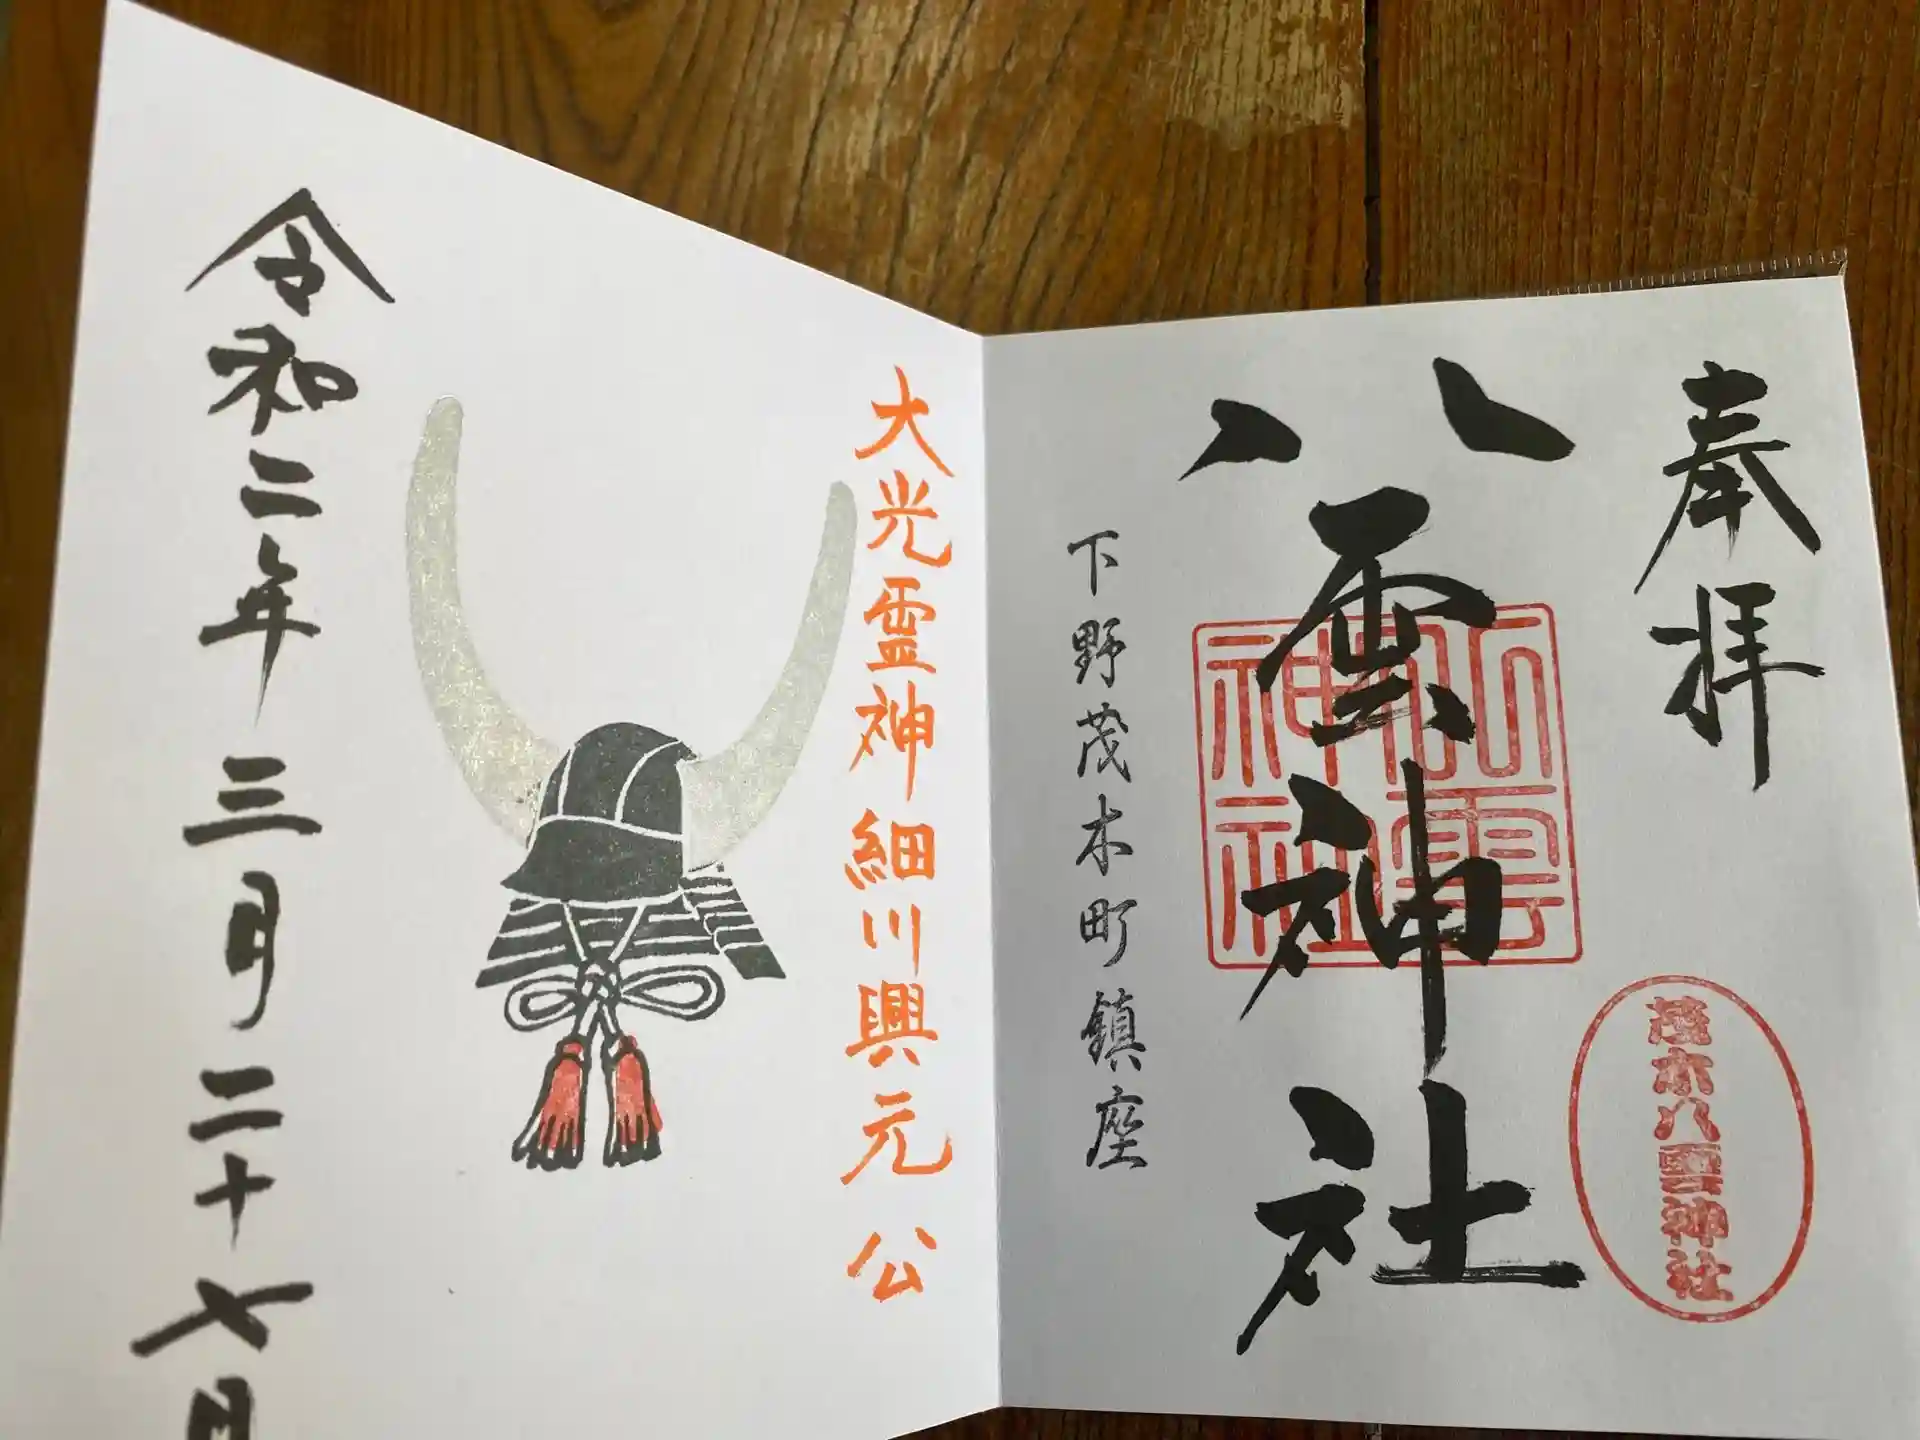 奉拝
茂木八雲神社
八雲神社
八雲神社
下野茂木町鎮座
大光霊神細川興元公
令和二年三月二十七日